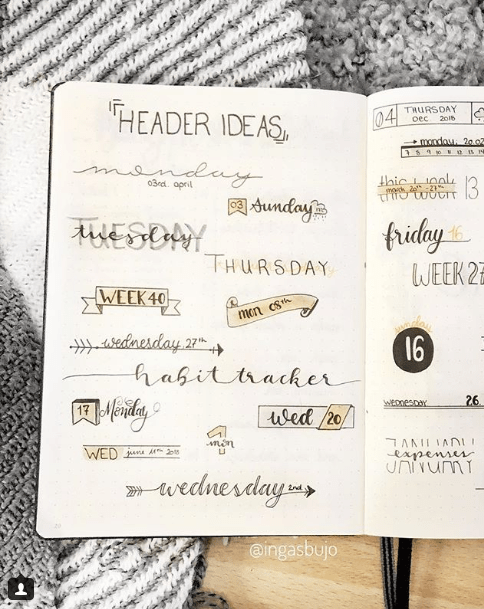 "HEADER IDEAS"
monday
03rd. april
03 Sunday
TUESDAY
tuesday
THURSDAY
WEEK 40
mon 08th
wednesday 27th
habit tracker
17 Monday
Wed 20
WED june 11th 2018
1
min
wednesday 2nd
04 THURSDAY
DEC 2018
monday. 20.02
7 8 9 10 11 12 13 14
this week 13
march 20th - 27th
friday 16
WEEK 27
monday
16
wednesday 26.
JANUARY
expenses
JANUARY
@ingasbujo